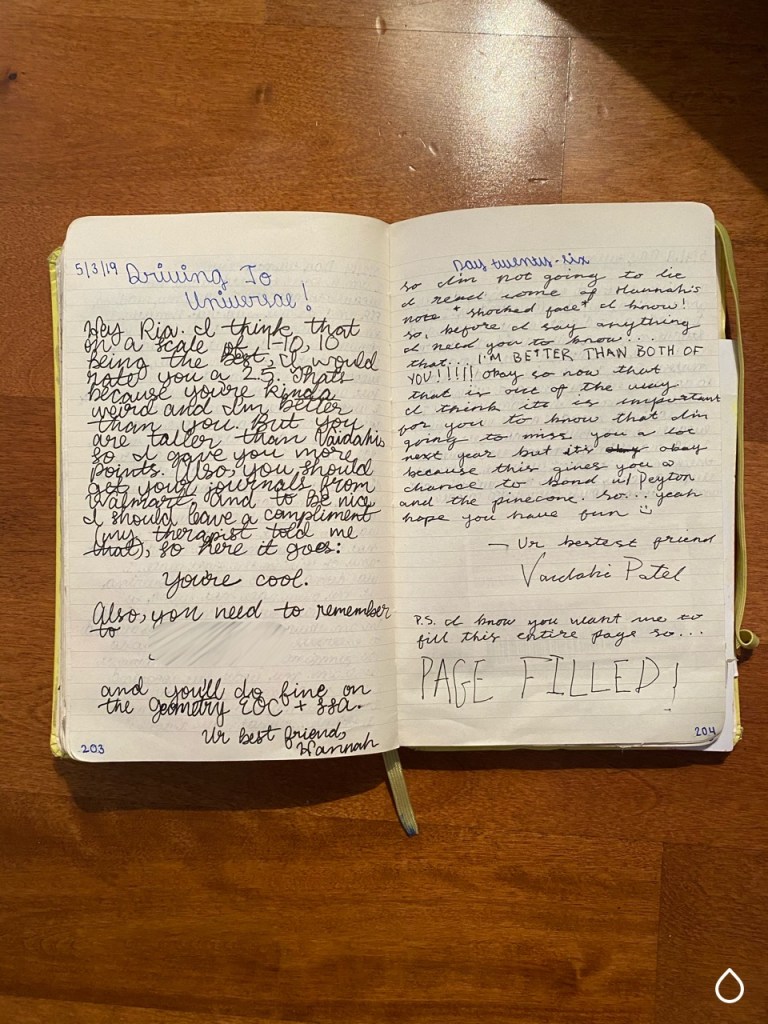 5/3/19 Driving To
Universal!
Hey Ria. I think that
on a scale of 1-10, 10
being the best, I would
rate you a 2.5. Thats
because you're kinda
weird and I'm better
than you. But you
are taller than Vaidahis
so I gave you more
points. Also, you should
get your journals from
Walmart, and to be nice
I should leave a compliment
(my therapist told me
that), so here it goes:
You're cool.
Also, you need to remember
to
and you'll do fine on
the geometry EOC + SSA.
Ur best friend,
Hannah
203
Day twenty-six
so I'm not going to lie
I read some of Hannah's
note *shocked face* I know!
so, before I say anything
I need you to know...
that... I'M BETTER THAN BOTH OF
YOU!!!!! okay so now that
that is out of the way
I think its is important
for you to know that I'm
going to miss you a lot
next year but its okay okay
because this gives you a
chance to bond w/ Peyton
and the pinecone. So... yeah
hope you have fun :)
- Ur bestest friend
Vaidahi Patel
P.S. I know you want me to
fill this entire page so...
PAGE FILLED!
204